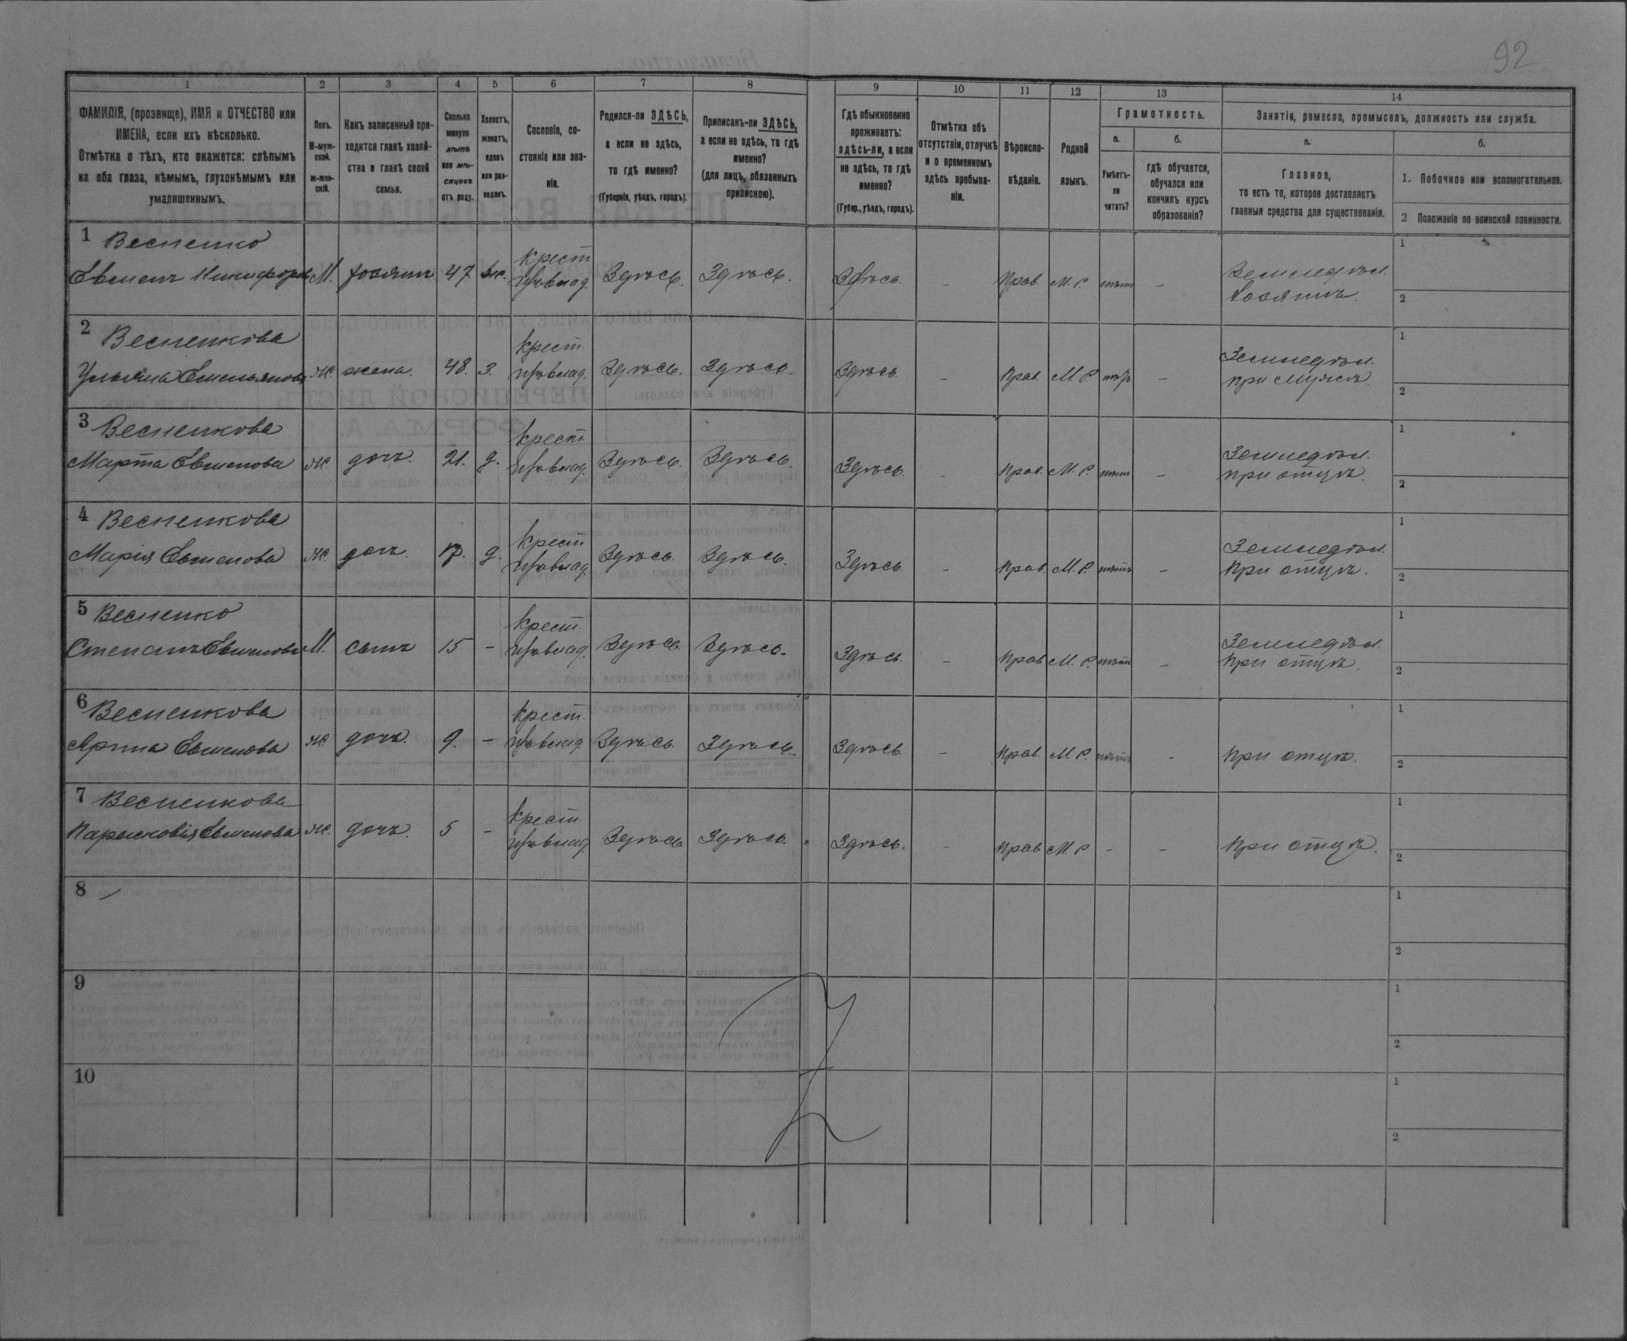 92
1 2 3 4 5 6 7 8 9 10 11 12 13 14
ФАМИЛІЯ, (прозвище), ИМЯ и ОТЧЕСТВО или
ИМЕНА, если ихъ нѣсколько.
Отмѣтка о тѣхъ, кто окажется: слѣпымъ
на оба глаза, нѣмымъ, глухонѣмымъ или
умалишеннымъ.
Полъ.
М-муж-
ской.
ж-жен-
скій.
Какъ записанный при-
ходится главѣ хозяй-
ства и главѣ своей
семьи.
Сколько
минуло
лѣтъ
или мѣ-
сяцевъ
отъ роду.
Холостъ,
женатъ,
вдовъ
или раз-
веденъ.
Сословіе, со-
стояніе или зва-
ніе.
Родился-ли ЗДѢСЬ,
а если не здѣсь,
то гдѣ именно?
(Губернія, уѣздъ, городъ).
Приписанъ-ли ЗДѢСЬ,
а если не здѣсь, то гдѣ
именно?
(для лицъ, обязанныхъ
припискою).
Гдѣ обыкновенно
проживаетъ:
здѣсь-ли, а если
не здѣсь, то гдѣ
именно?
(Губер., уѣздъ, городъ).
Отмѣтка объ
отсутствіи, отлучкѣ
и о временномъ
здѣсь пребыва-
ніи.
Вѣроиспо-
вѣданіе.
Родной
языкъ.
Грамотность.
а.
Умѣетъ-
ли
читать?
б.
гдѣ обучается,
обучался или
кончилъ курсъ
образованія?
Занятія, ремесло, промыселъ, должность или служба.
а.
Главное,
то есть то, которое доставляетъ
главныя средства для существованія.
б.
1. Побочное или вспомогательное.
2 Положеніе по воинской повинности.
1 Весненко Крест. Земледѣл.
М. хозяинъ 47 Здѣсь. Здѣсь. Здѣсь. - Прав. М. Р. нѣтъ - хозяинъ.
1
2
2 Весненкова Крест.
Ульяна Емельянова Ж. жена. 48. З. Здѣсь. Здѣсь. Здѣсь. - Прав. М. Р. - Земледѣл.
при мужѣ.
1
2
3 Весненкова Крест.
Марта Ж. дочь. 21. д. Здѣсь. Здѣсь. Здѣсь. - Прав. М. Р. нѣтъ - Земледѣл.
при отцѣ.
1
2
4 Весненкова Крест.
Марія Ж. дочь. д. Здѣсь. Здѣсь. Здѣсь. - Прав. М. Р. нѣтъ - Земледѣл.
при отцѣ.
1
2
5 Весненко Крест.
Степанъ М. сынъ 15 - Здѣсь. Здѣсь. Здѣсь. - Прав. М. Р. нѣтъ - Земледѣл.
при отцѣ.
1
2
6 Весненкова Крест.
Арина Ж. дочь. 9. - Здѣсь. Здѣсь. Здѣсь. - Прав. М. Р. нѣтъ - при отцѣ.
1
2
7 Весненкова Крест.
Ж. дочь. 5 - Здѣсь. Здѣсь. Здѣсь. - Прав. М. Р. - - при отцѣ.
1
2
8
1
2
9
1
2
10
1
2